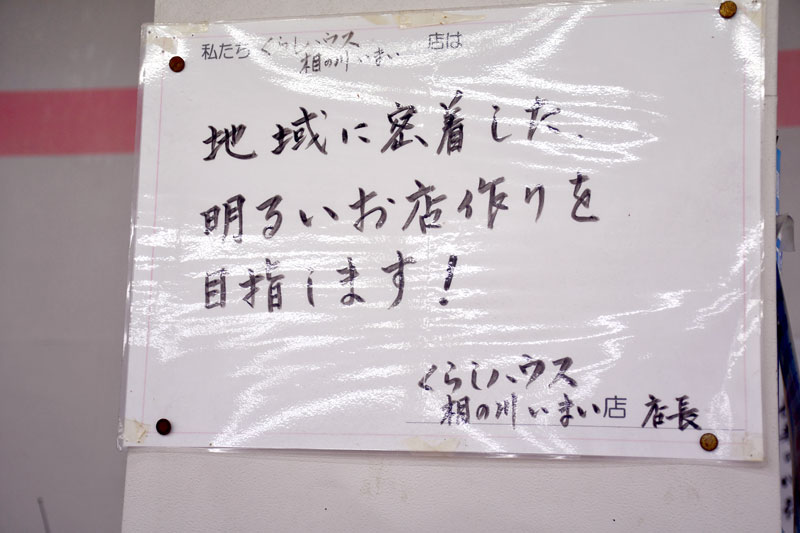 私たち くらしハウス 店は
相の川いまい
地域に密着した、
明るいお店作りを
目指します！
くらしハウス
相の川いまい店 店長